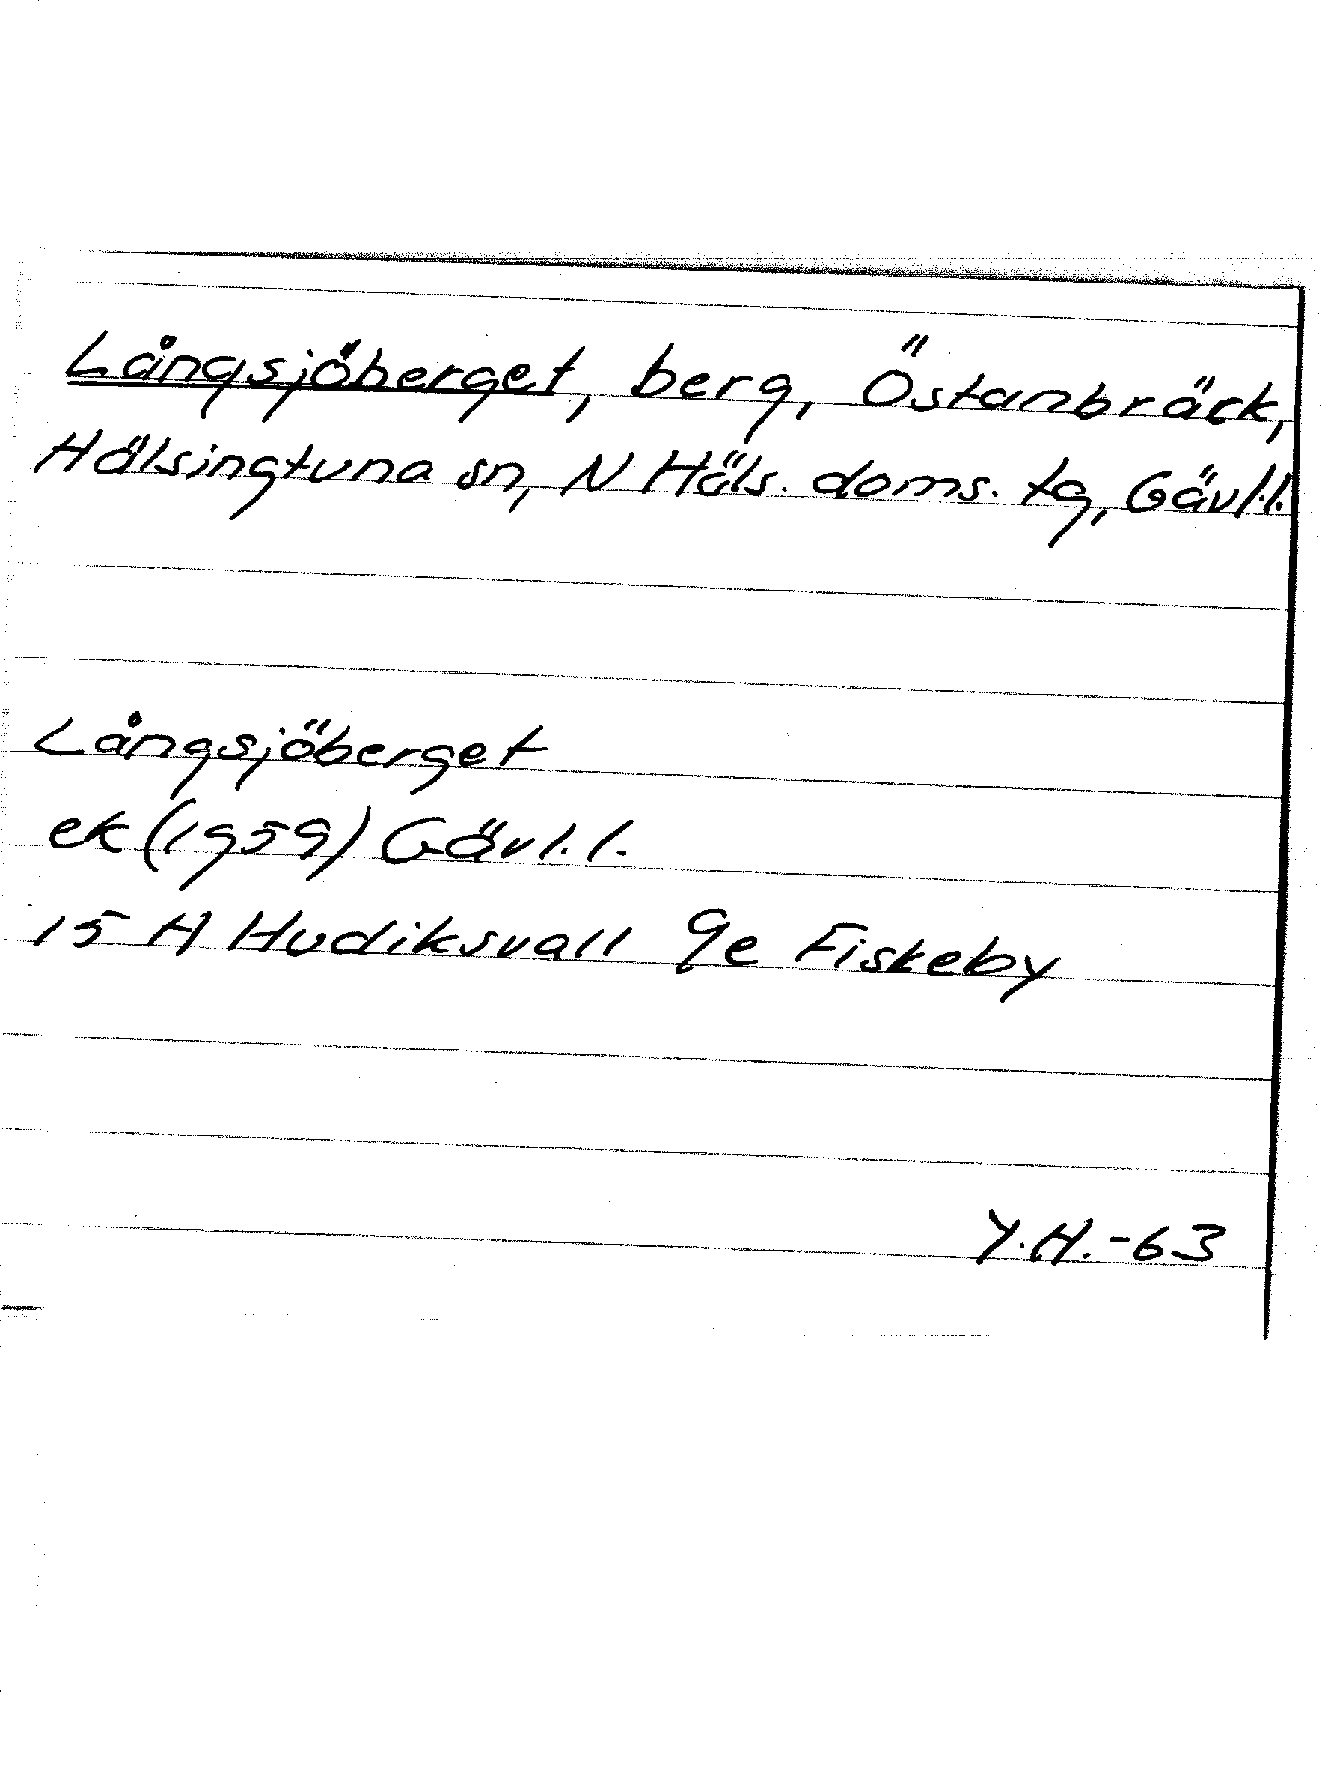 Långsjöberget, berg, Östanbräck,
Hälsingtuna sn, N Häls. doms. tg, Gävl.l.
Långsjöberget
ek (1959) Gävl.l.
15 H Hudiksvall 9e Fiskeby
Y.H.-63